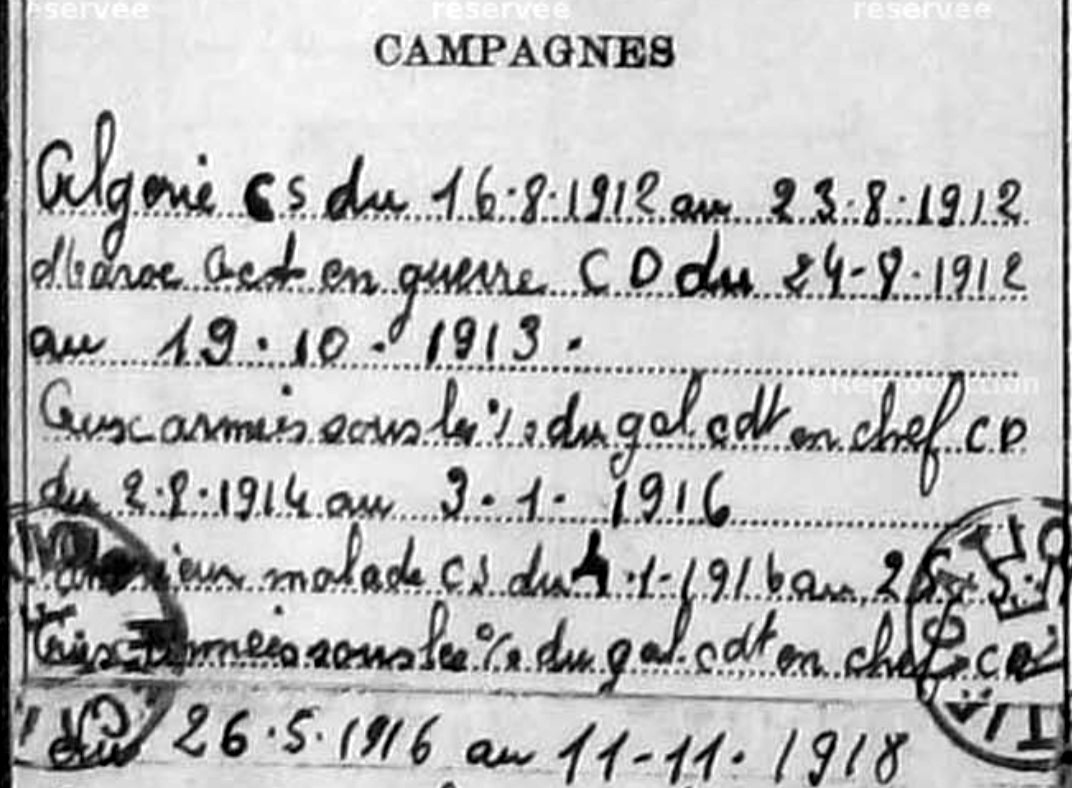 reservee reservee reservee
CAMPAGNES
Algerie CS du 16.8.1912 au 23.8.1912
Maroc Act en guerre CD du 24-8.1912
au 19.10.1913.
Aux armées sous les %. du gal cdt en chef CD
du 2.8.1914 au 3.1.1916
malade CS du 4.1-1916 au 25 5.
Aux armées sous les %. du gal cdt en chef CD
du 26.5.1916 au 11-11.1918